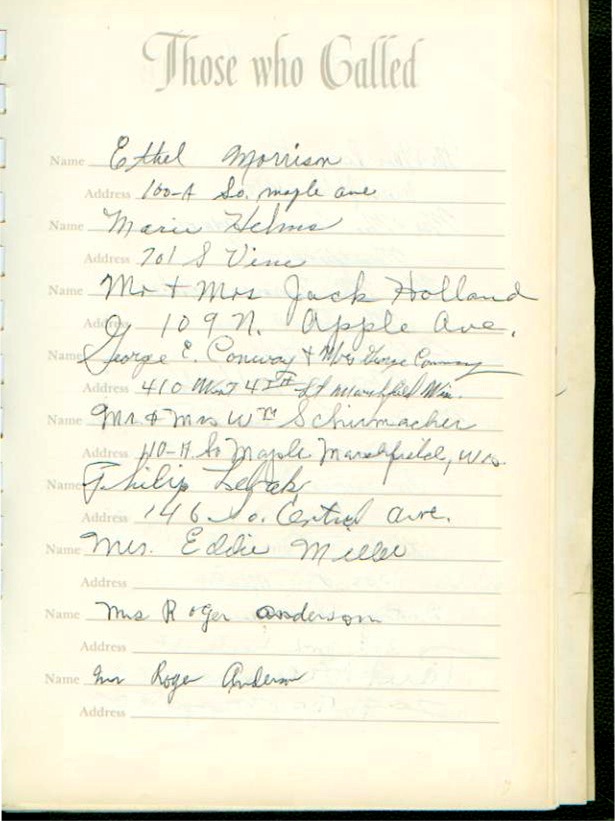 Those who Called
Name Ethel Morrison
Address 100-A So. maple ave
Name Marie Helms
Address 701 S Vine
Name Mr + Mrs Jack Holland
Address 109 N. Apple Ave.
Name George E. Conway + Mrs George Conway
Address 410 West 4th St Marshfield Wis.
Name Mr. & Mrs Wm Schirmacher
Address 110-A So Maple Marshfield, Wis
Name Philip
Address 146 So. Central Ave.
Name Mrs. Eddie Miller
Address
Name Mrs Roger Anderson
Address
Name Mr Roger Anderson
Address